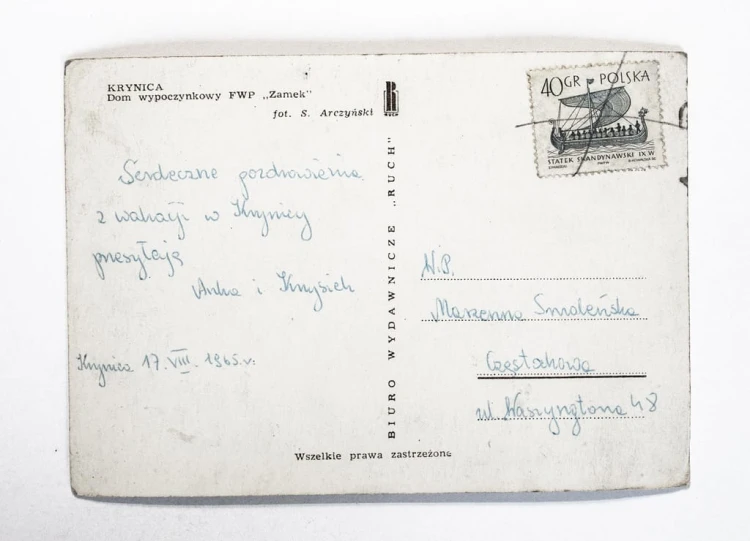 KRYNICA
Dom wypoczynkowy FWP „Zamek"
fot. S. Arczyński
RUCH
40 GR POLSKA
STATEK SKANDYNAWSKI IX W
Serdeczne pozdrowienia
z wakacji w Krynicy
przesyłają
Anka i Krzysiek
Krynica 17. VIII. 1965.r.
BIURO WYDAWNICZE „RUCH"
W.P.
Marzenna Smoleńska
Częstochowa
ul. Waszyngtona 48
Wszelkie prawa zastrzeżone